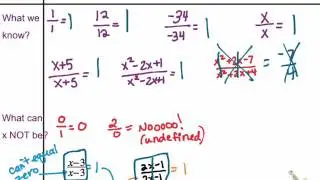 What we know?
1/1 = 1 12/12 = 1 -34/-34 = 1 x/x = 1
x+5/x+5 = 1 x²-2x+1/x²-2x+1 = 1 x²+2x-7/x²+2x+4 = -7/4
What can x NOT be?
0/1 = 0 2/0 = NOOOOO! (undefined)
can't equal zero x-3/x-3 = 1 2x-1/2x-1 = 1